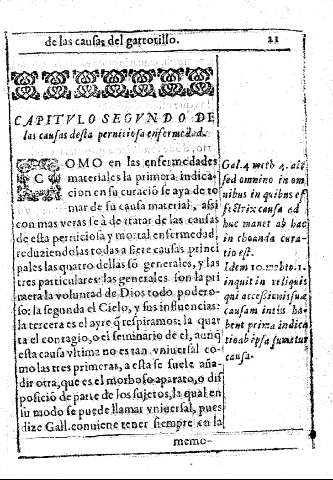 de las causas del garrotillo. 21
CAPITVLO SEGVNDO DE
las causas desta perniciosa enfermedad.
COMO en las enfermedades
materiales la primera indica-
cion en su curació se aya de to
mar de su causa material, assi
con mas veras se à de tratar de las causas
de esta perniciosa y mortal enfermedad,
reduziendolas todas a siete causas princi
pales las quatro dellas só generales, y las
tres particulares: las generales son la pri
mera la voluntad de Dios todo podero-
so: la segunda el Cielo, y sus influencias:
la tercera es el ayre q̃ respiramos: la quar
ta el contagio, o el seminario de el, aunq̃
esta causa vltima no es tan vniuersal co-
mo las tres primeras, a esta se suele aña-
dir otra, que es el morboso aparato, o dis
posició de parte de los sujetos, la qual en
su modo se puede llamar vniuersal, pues
dize Gall. conuiene tener siempre en la
memo-
Gal. 4. meth 4. ait
sed omnino in om
nibus in quibus ef
fictrix causa ad
huc manet ab hac
in choanda cura-
tio est.
Idem 10. methto. 1.
inquit in reliquis
qui accessionis suæ
causam intùs ha-
bent prima indica
tio ab ipsa sumatur
causa.